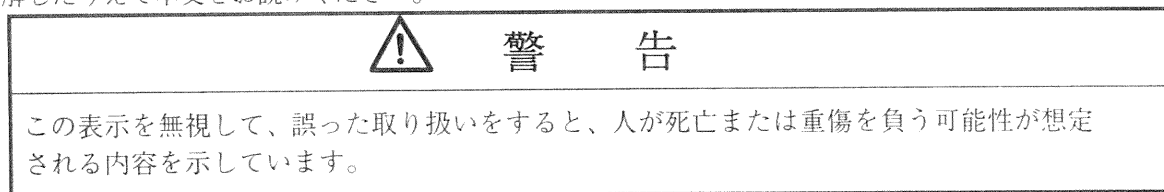 警 告
この表示を無視して、誤った取り扱いをすると、人が死亡または重傷を負う可能性が想定
される内容を示しています。